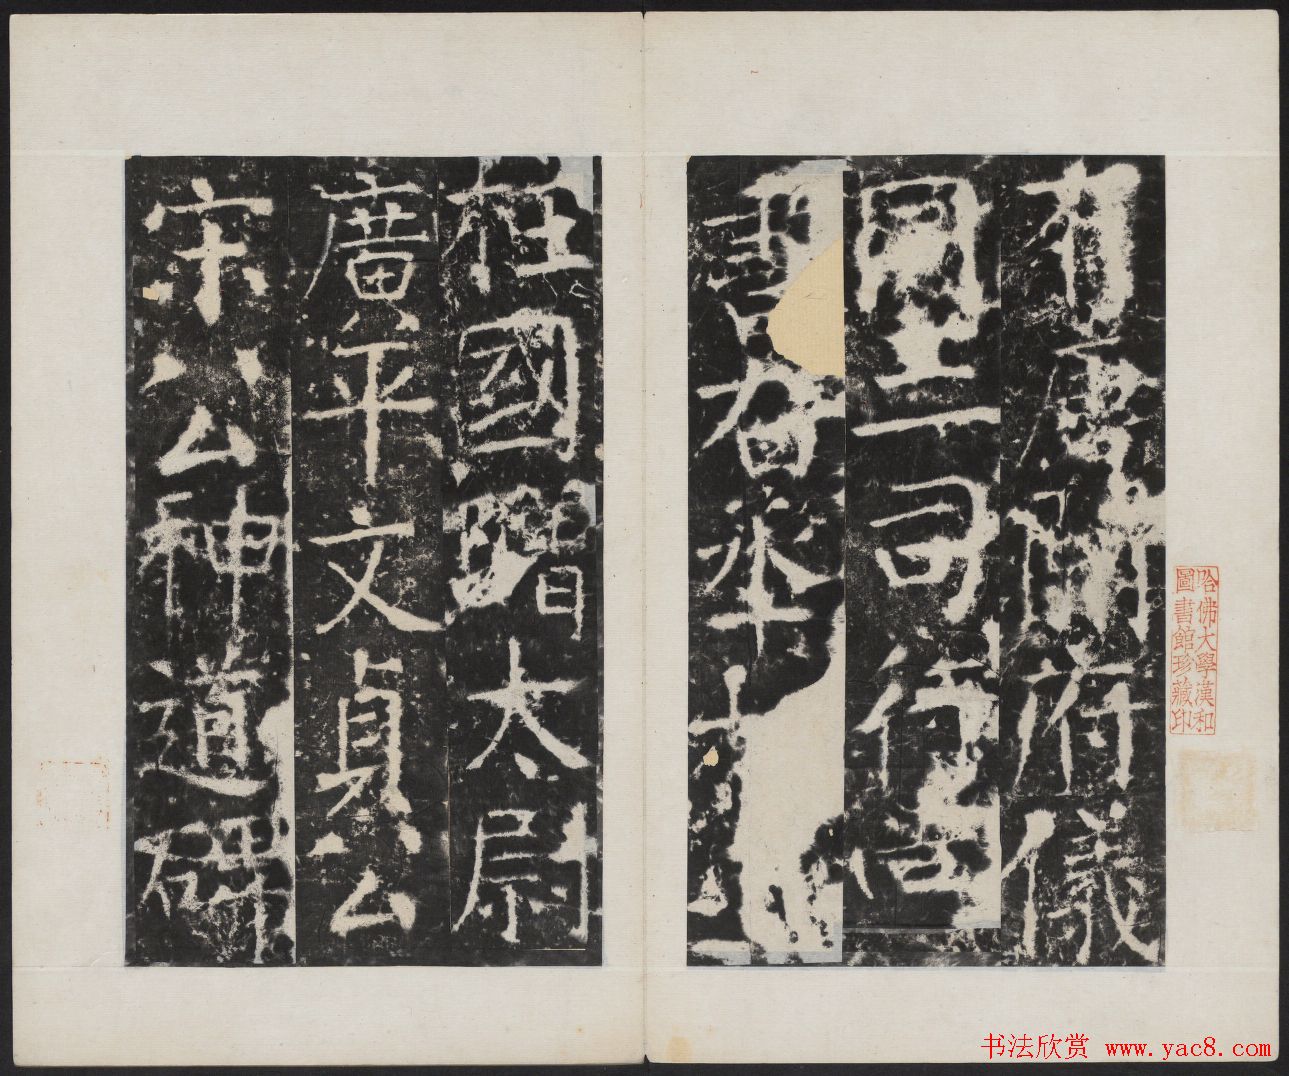 有唐開府儀
同三司行尚
書右丞相上
柱國贈太尉
廣平文貞公
宋公神道碑
哈佛大學漢和
圖書館珍藏印
书法欣赏 www.yac8.com